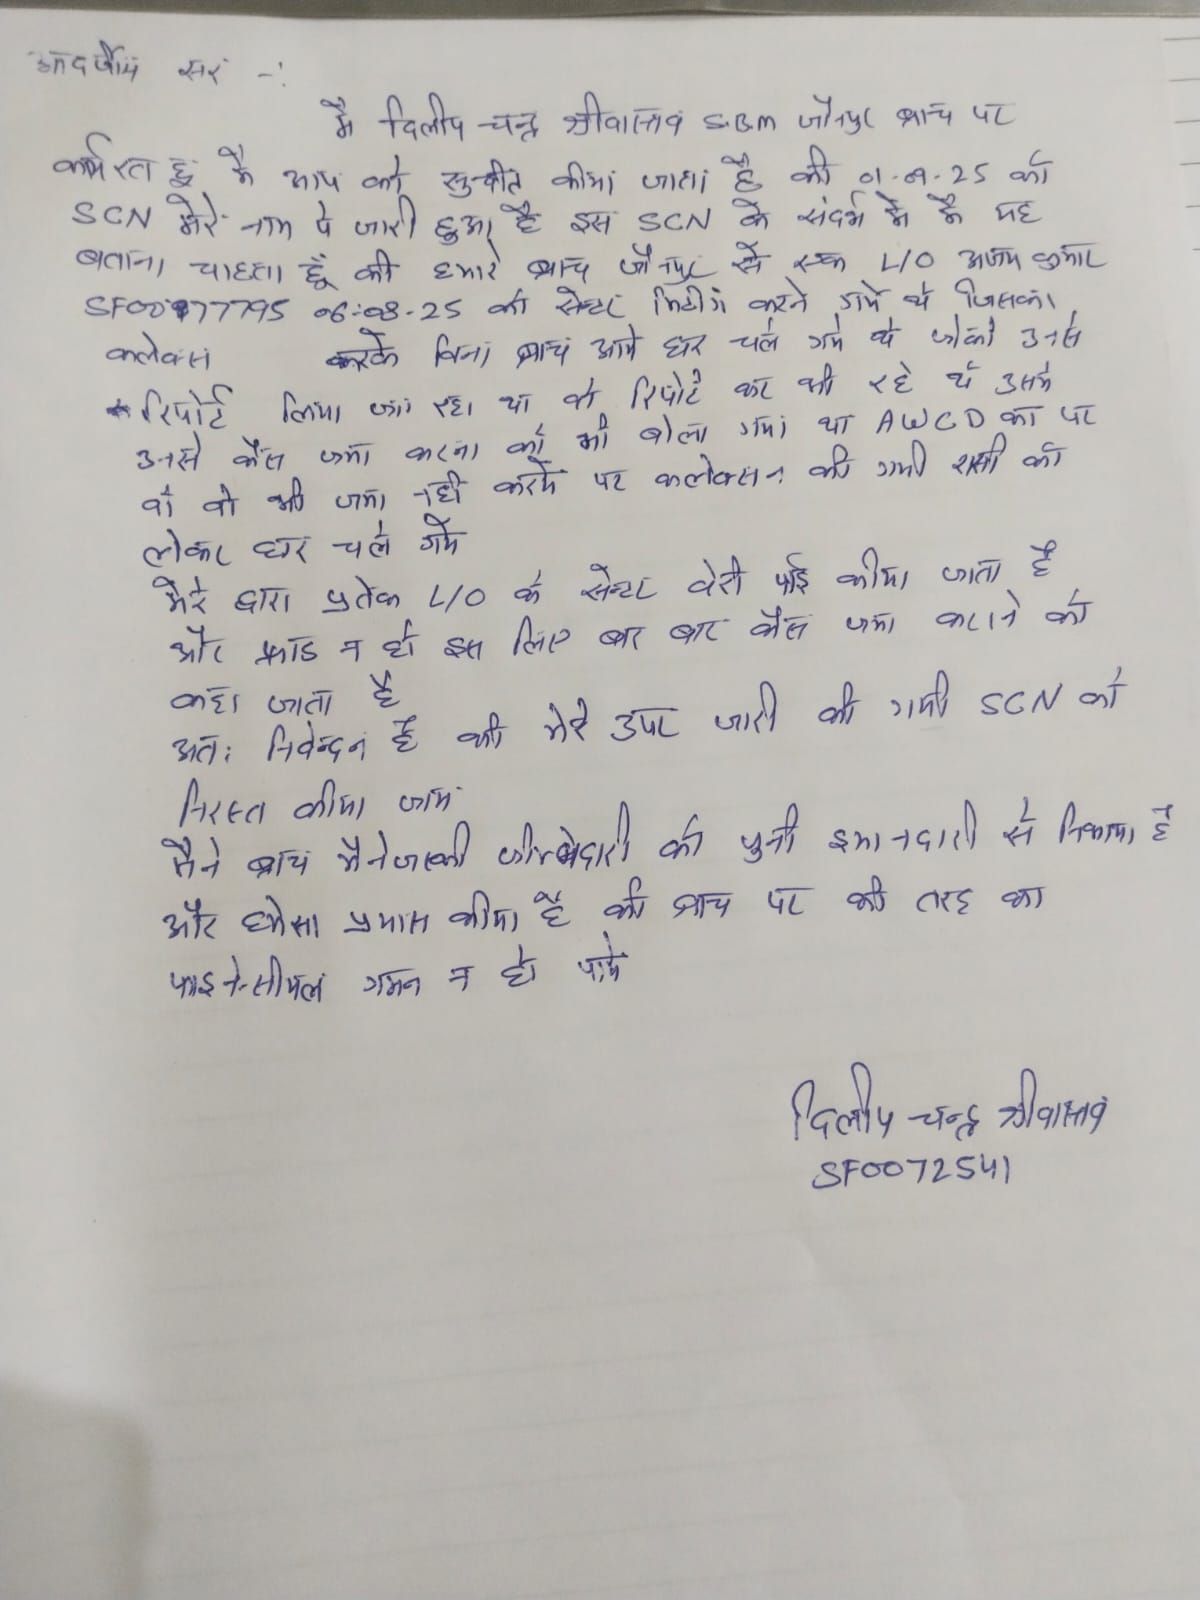 आदर्णीय सर -:
मै दिलीप चन्द्र श्रीवास्तव S.B.M जौनपुर ब्रांच पर
कार्यरत हूं मै आप को सुचीत कीया जाता है की 01-09-25 को
SCN मेरे नाम पे जारी हुआ है इस SCN के संदर्भ मे मै यह
बताना चाहता हूँ की हमारे ब्रांच जौनपुर से एक L/O अजय कुमार
06-08-25 को सेन्टर मिटींग करने गये थे जिसका
कलेक्सं करके बिना ब्रांच आये घर चले गये थे जोकी उनसे
रिपोर्ट लिया जा रहा था वो रिपोर्ट कर भी रहे थे उसमे
उनसे कैस जमा करना को भी बोला गया था AWCD का पर
वो भी जमा नही करके पर कलेक्सन की गयी रासी को
लेकर घर चले गये
मेरे द्वारा प्रतेक L/O के सेन्टर वेरी फाई कीया जाता है
और फ्राड न हो इस लिए बार बार कैस जमा कराने को
कहा जाता है
अतः निवेन्दन है की मेरे उपर जारी की गयी SCN को
निरस्त कीया जाय
मैने ब्रांच मैनेजरकी जीम्मेदारी को पुरी इमानदारी से निभाया है
और हमेसा प्रयास कीया है की ब्रांच पर की तरह का
फाइनेन्सीयल गमन न हो पाये
दिलीप चन्द्र श्रीवास्तव
SF0072541